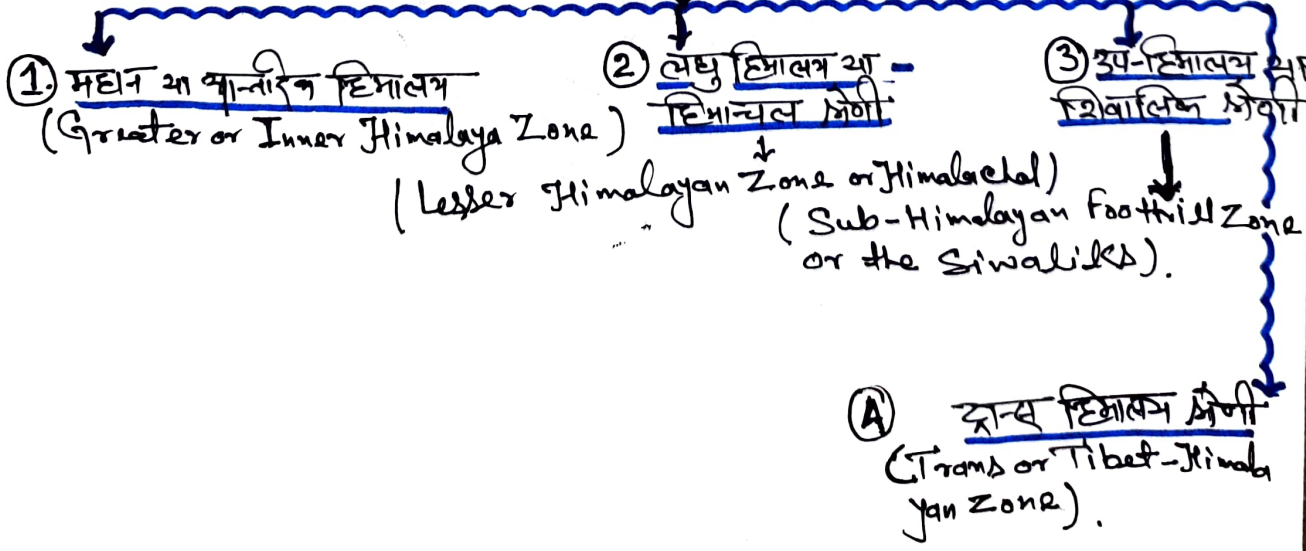 1. महान या आन्तरिक हिमालय
(Greater or Inner Himalaya Zone)
2 लघु हिमालय या -
हिमान्चल श्रेणी
(Lesser Himalayan Zone or Himalachal)
3 उप-हिमालय या
शिवालिक श्रेणी
(Sub-Himalayan Foothill Zone
or the Siwaliks).
A ट्रान्स हिमालय श्रेणी
(Trans or Tibet-Himala
yan Zone).